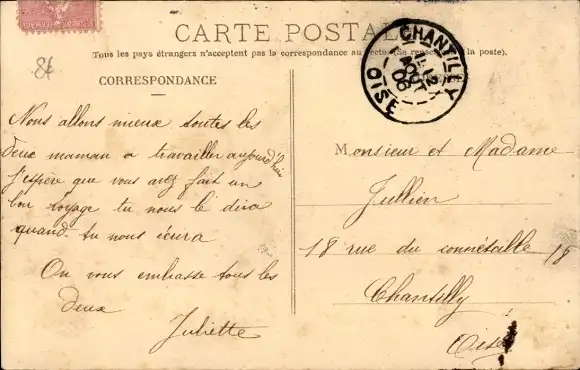 CARTE POSTALE
Tous les pays étrangers n'acceptent pas la correspondance au recto (Se renseigner à la poste).
CHANTILLY
AOUT
06
OISE
84
CORRESPONDANCE
Nous allons mieux toutes les
deux maman a travailler aujourd'hui
J'espère que vous avez fait un
bon voyage tu nous le dira
quand tu nous écrira
On vous embrasse tous les
deux
Juliette
Monsieur et Madame
Jullien
18 rue du connétable 18
Chantilly
Oise